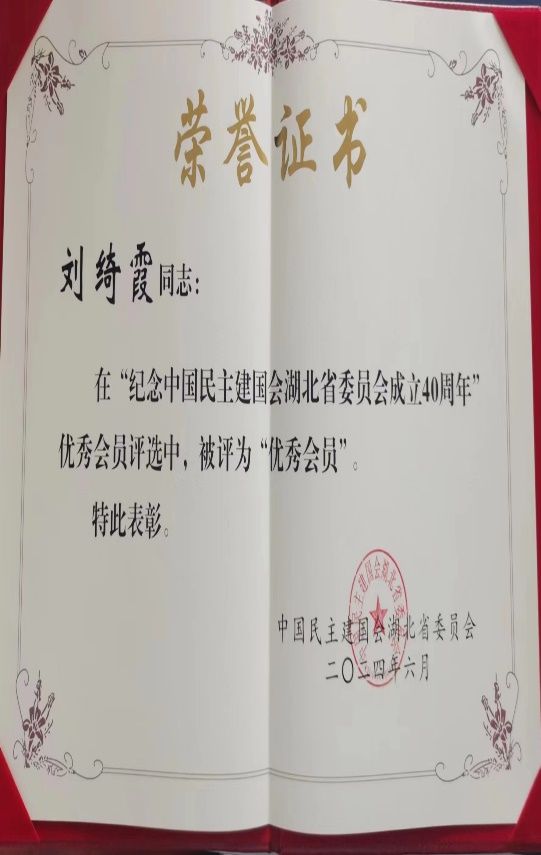 荣誉证书
刘绮霞同志：
在“纪念中国民主建国会湖北省委员会成立40周年”
优秀会员评选中，被评为“优秀会员”。
特此表彰。
中国民主建国会湖北省委员会
二〇二四年六月